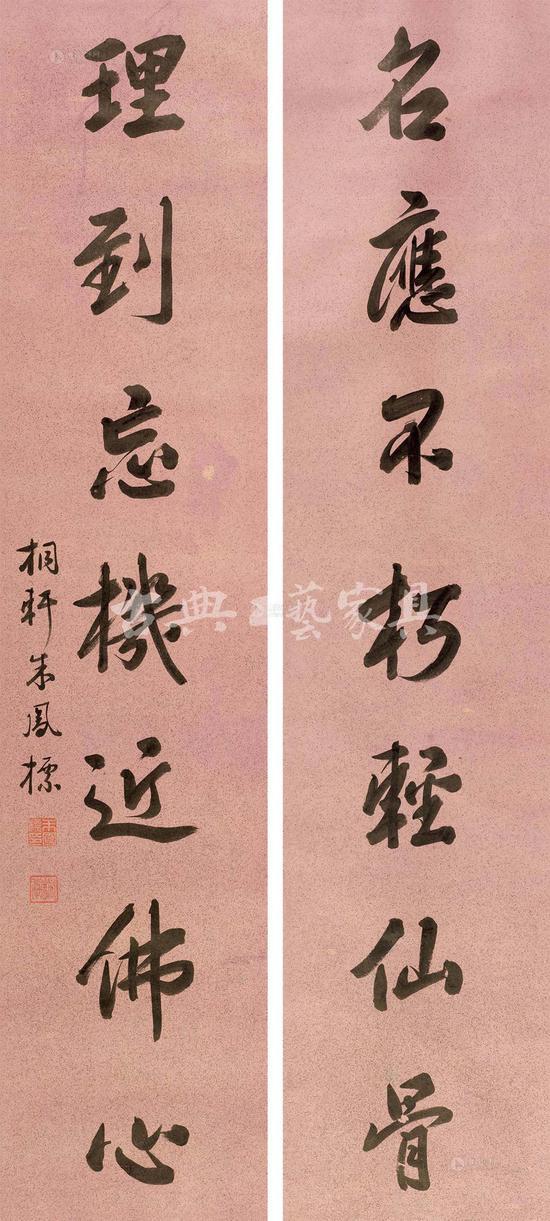 名應不朽輕仙骨
理到忘機近佛心
桐軒朱鳳標
典 藝家具